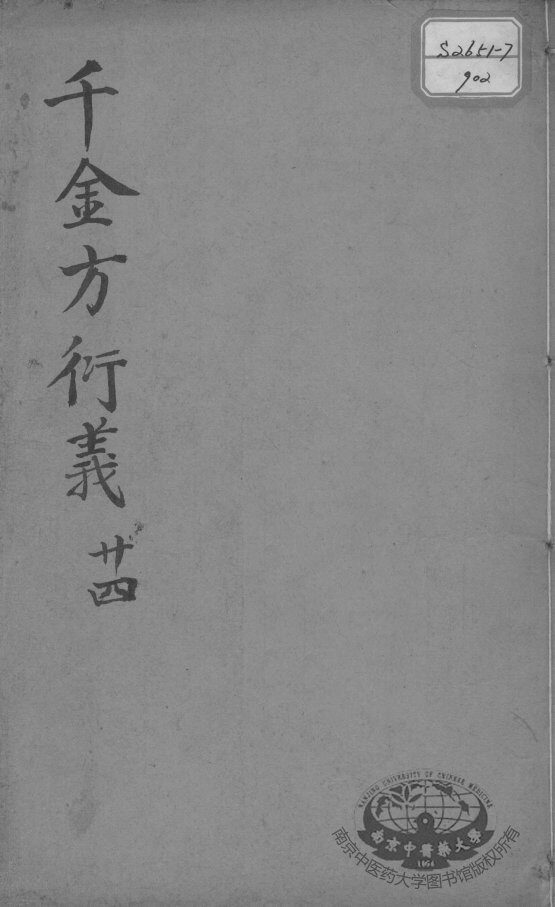 S2651-7
902
千金方衍義 廿四
NANJING UNIVERSITY OF CHINESE MEDICINE
南京中醫藥大學
1954
南京中医药大学图书馆版权所有